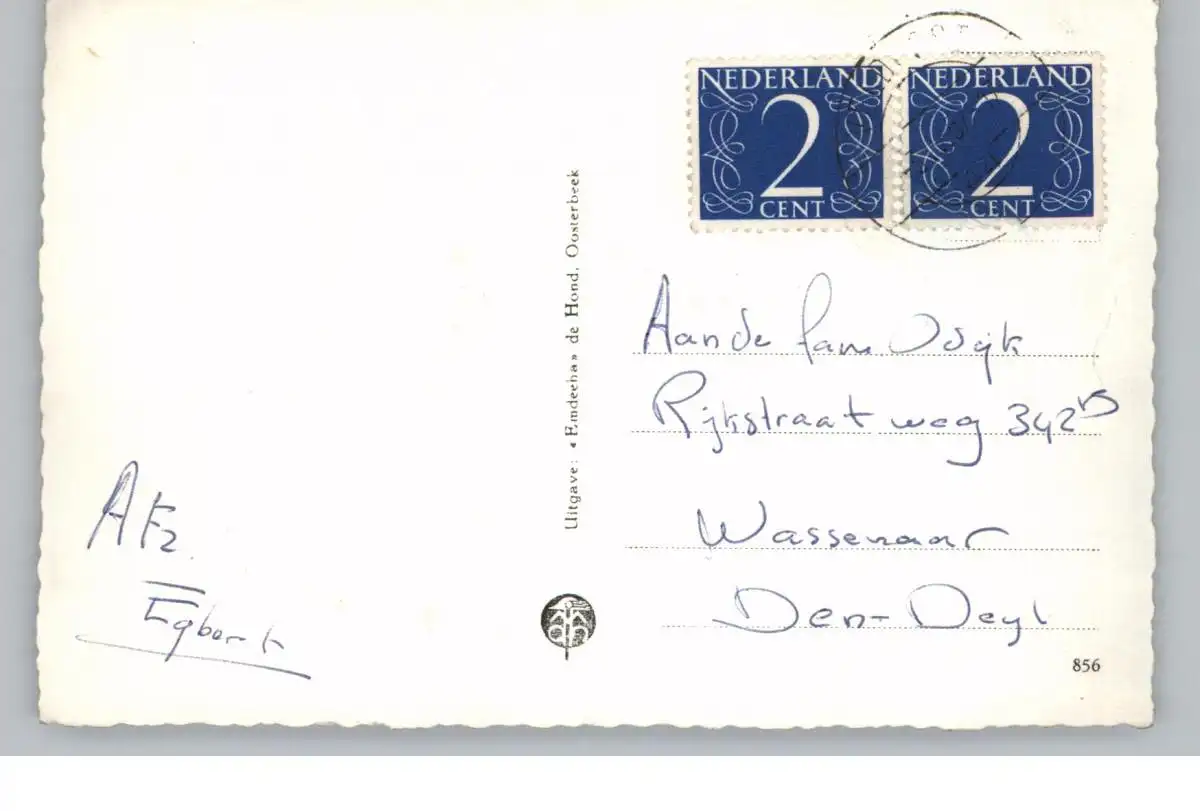 NEDERLAND
2
CENT
NEDERLAND
2
CENT
Uitgave: «Emdeeha» de Hond, Oosterbeek
Aan de fam Odijk
Rijkstraatweg 342
Wassenaar
Den-Deyl
Afz.
Egbert
856